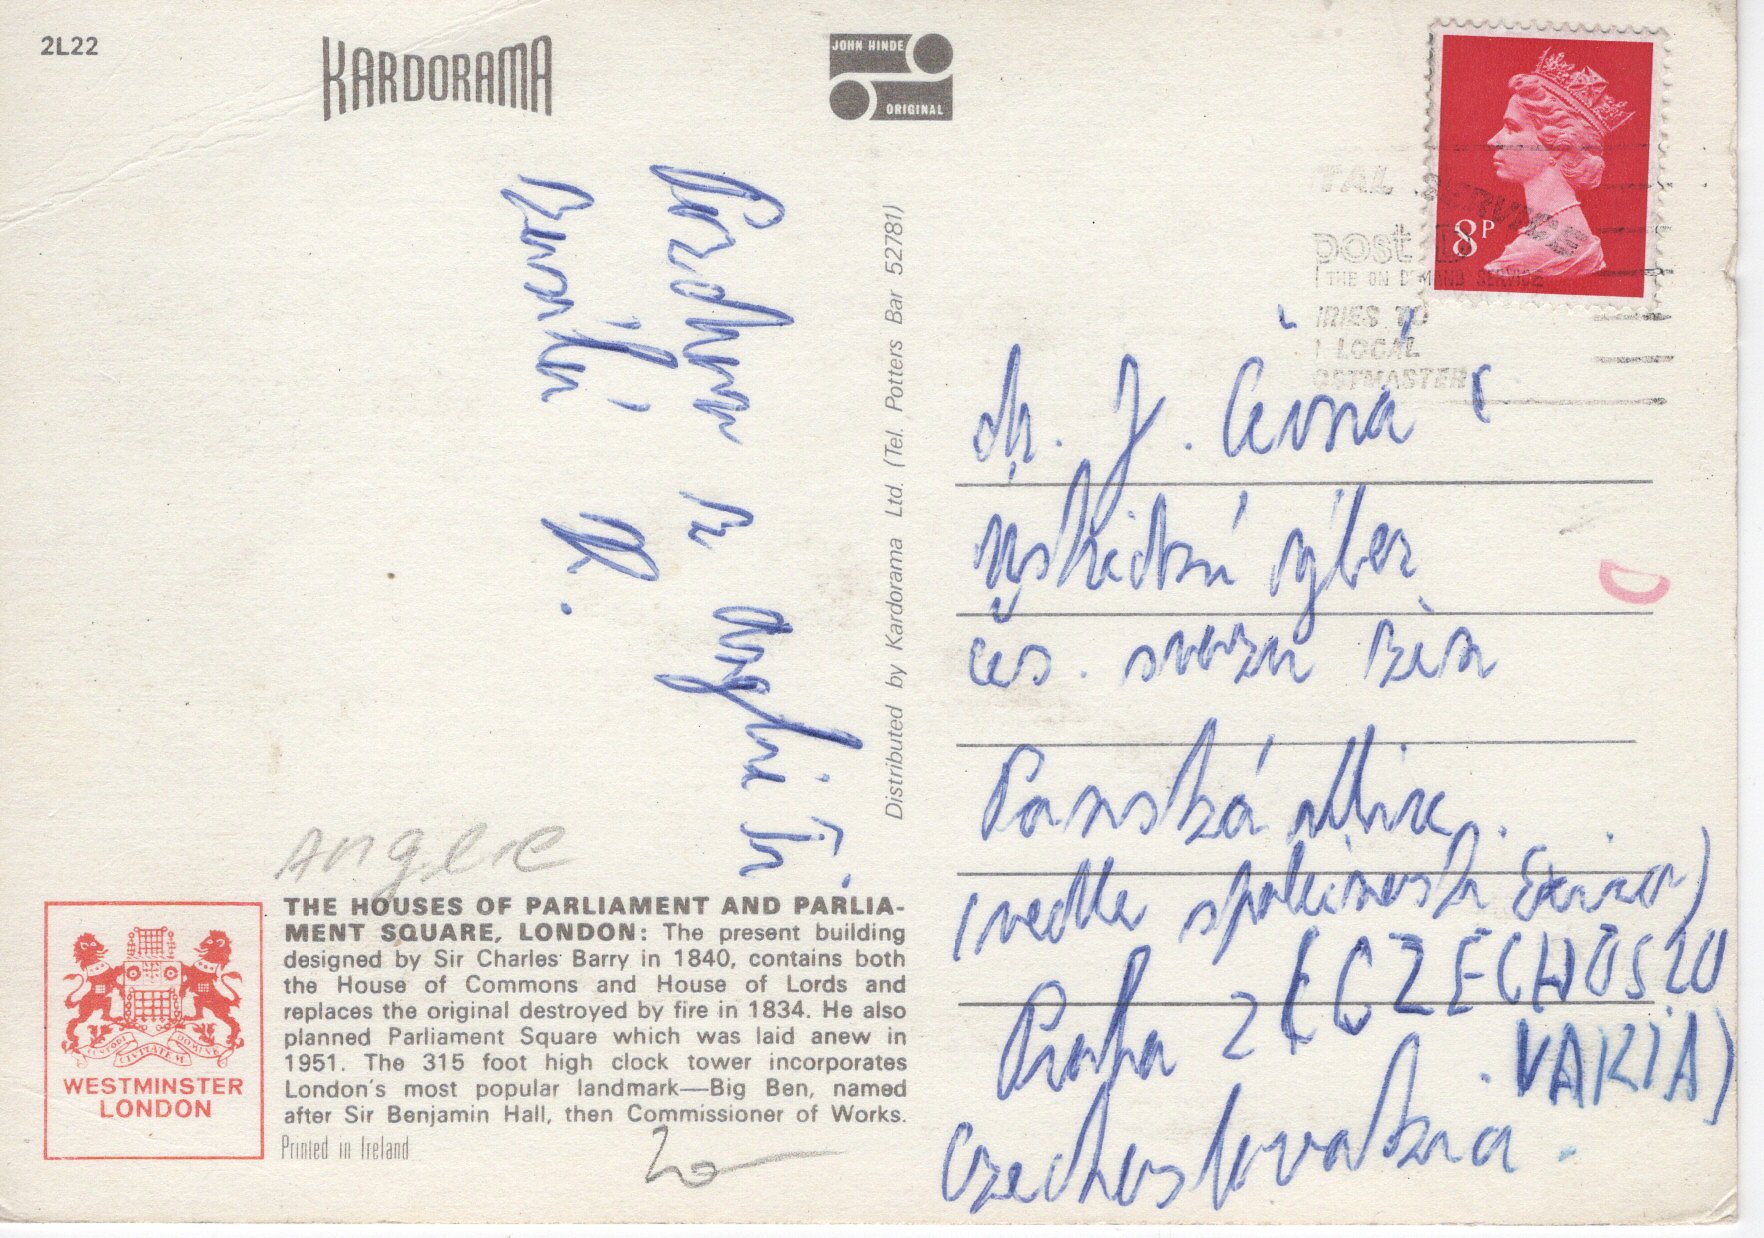 2L22
KARDORAMA
JOHN HINDE
ORIGINAL
8P
TAL SERVICE
post
THE ON DEMAND SERVICE
IRIES TO
LOCAL
OSTMASTER
Pozdrav z Anglie
Distributed by Kardorama Ltd. (Tel. Potters Bar 52781)
J.
Ústřední výbor
čs. svazu žen
Panská ulice.
(vedle
Praha 2 (CZECHOSLO
VAKIA)
Czechoslovakia.
Anglie
THE HOUSES OF PARLIAMENT AND PARLIA-
MENT SQUARE, LONDON: The present building
designed by Sir Charles Barry in 1840, contains both
the House of Commons and House of Lords and
replaces the original destroyed by fire in 1834. He also
planned Parliament Square which was laid anew in
1951. The 315 foot high clock tower incorporates
London's most popular landmark—Big Ben, named
after Sir Benjamin Hall, then Commissioner of Works.
Printed in Ireland
WESTMINSTER
LONDON